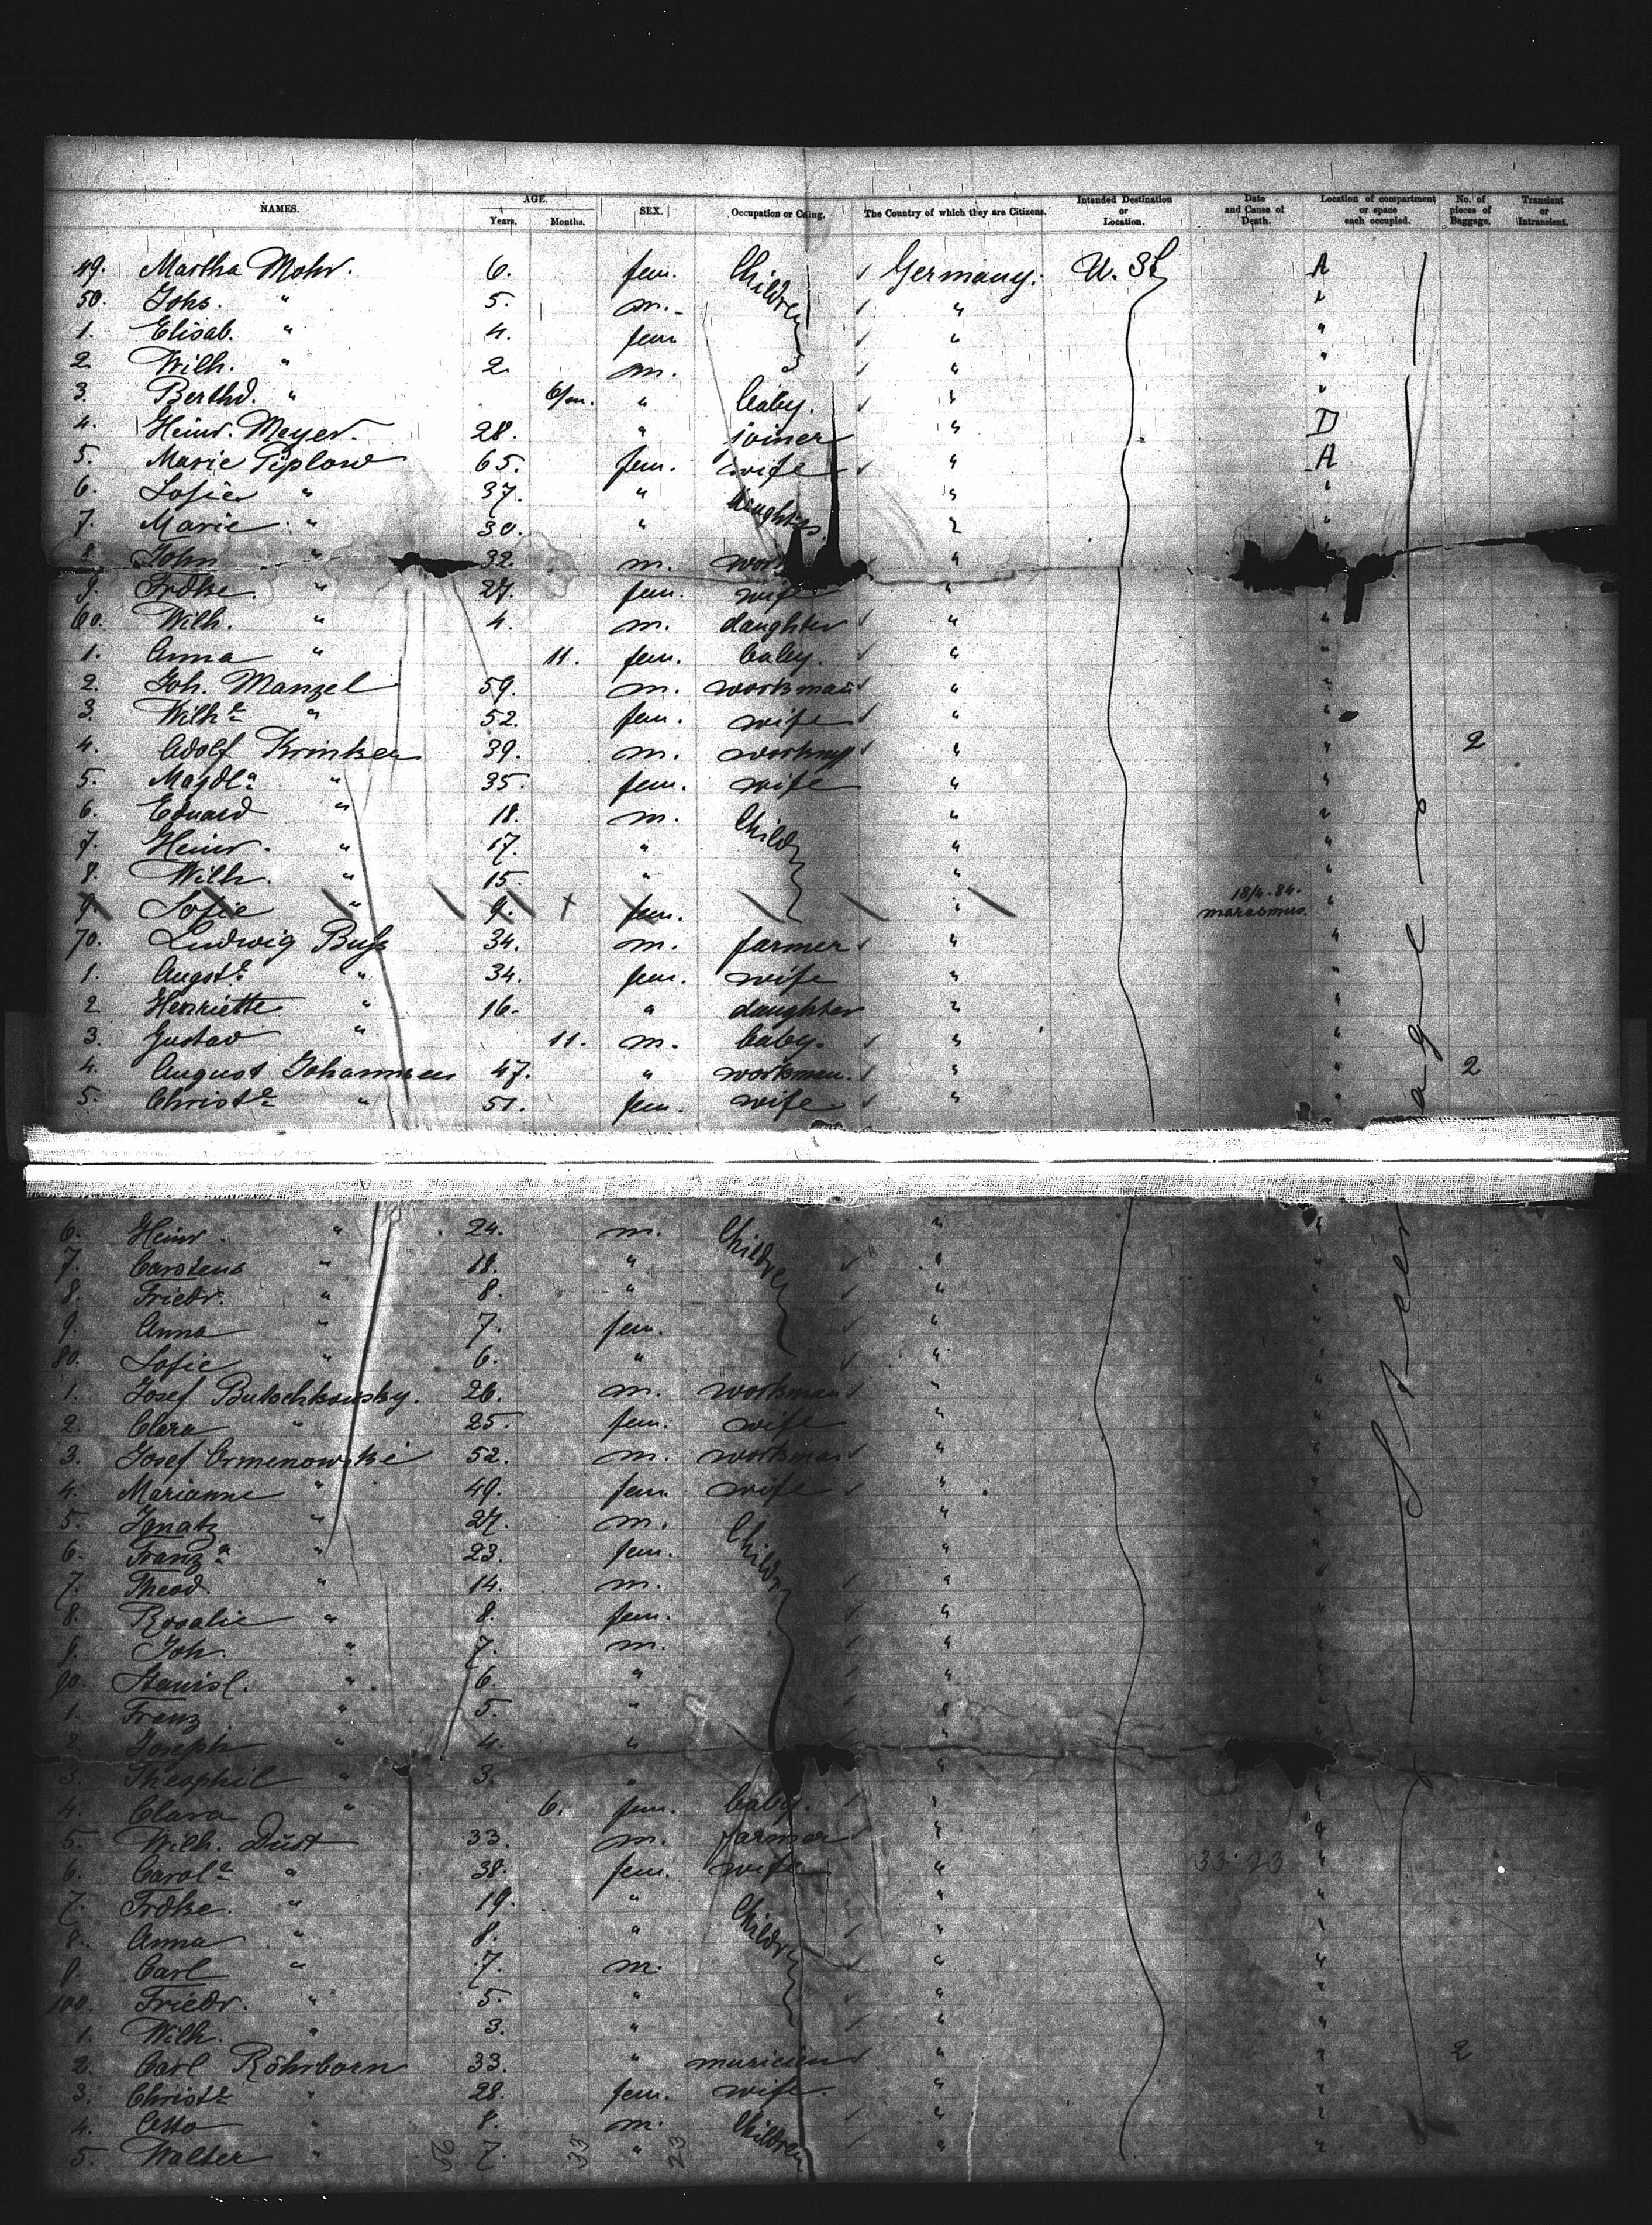 NAMES. AGE. Years. Months. SEX. Occupation or Calling. The Country of which they are Citizens. Intended Destination or Location. Date and Cause of Death. Location of compartment or space each occupied. No. of pieces of Baggage. Transient or Intransient.
49. Martha Mohr. 6. fem. Children Germany. U. St. A
50. Johs. " 5. m. " "
1. Elisab. " 4. fem " "
2 Wilh. " 2 m. " "
3. Berthd. " 6/m. " baby. " "
4. Heinr. Meyer. 28. " joiner " D
5. Marie Piplow 65. fem. wife " A
6. Sofie " 37. " daughters " "
7. Marie " 30. " " "
8. John " 32. m. "
9. Frdke. " 27. fem. wife " "
60. Wilh. " 4. m. daughter " "
1. Anna " 11. fem. baby. " "
2. Joh. Manzel 59. m. workman " "
3. Wilhe " 52. fem. wife " "
4. Adolf Krinken 39. m. workm " " 2
5. Magdla " 35. fem. wife " "
6. Eduard " 18. m. Childr " "
7. Heinr. " 17. " " "
8. Wilh. " 15. " " "
9. Sofie " 9. fem. " 18/4.84. marasmus. "
70. Ludwig Buss 34. m. farmer " "
1. Augste " 34. fem. wife " "
2 Henriette " 16. " daughter " "
3. Gustav " 11. m. baby. " "
4. August Johannsen 47. " workman. " " 2
5. Christe " 51. fem. wife " "
6. Heinr. " 24. m. Children " "
7. Carstens " 18. " " "
8. Friedr. " 8. " " "
9. Anna " 7. fem. " "
80. Sofie " 6. " " "
1. Josef Butschkowsky. 26. m. workman " "
2. Clara " 25. fem. wife " "
3. Josef Ormenowski 52. m. workman " "
4. Marianne " 49. fem wife " "
5. Ignatz " 27. m. Childr " "
6. Franza " 23. fem. " "
7. Theod. " 14. m. " "
8. Rosalie " 8. fem. " "
9. Joh. " 7. m. " "
90. Stanisl. " 6. " " "
1. Franz " 5. " " "
2 Joseph " 4. " " "
3. Theophil " 3. " " "
4. Clara " 6. fem. baby. " "
5. Wilh. Dust 33. m. farmer " "
6. Carole " 38. fem. wife " "
7. Frdke. " 19. " Childr " "
8. Anna " 8. " " "
9. Carl " 7. m. " "
100. Friedr. " 5. " " "
1. Wilh. " 3. " " "
2. Carl Röhrborn 33. " musician " " 2
3. Christe " 28. fem. wife. " "
4. Otto " 8. m. Children " "
5. Walter " 7. " " "
Steerage